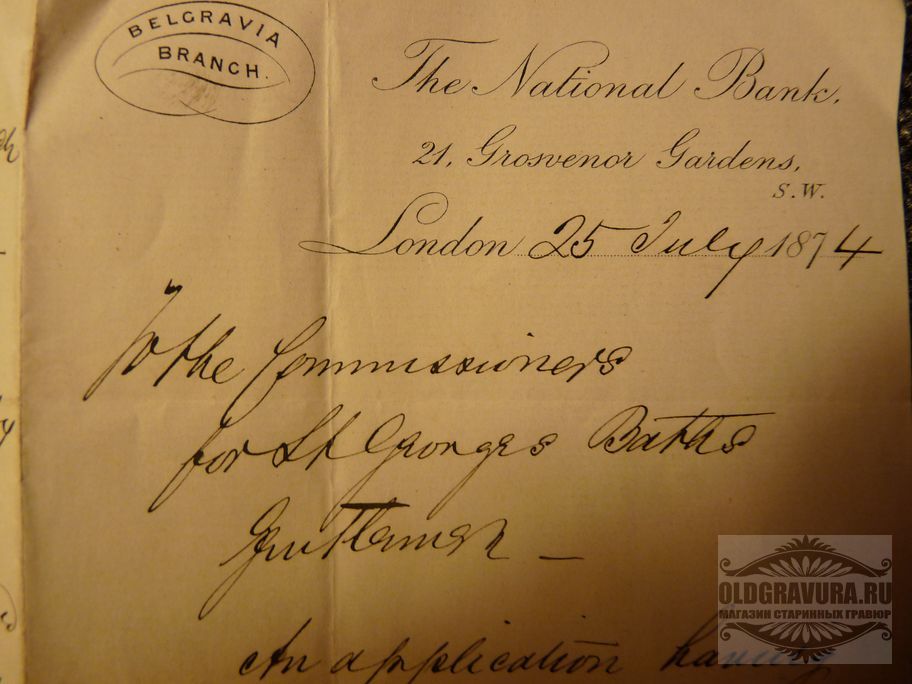 BELGRAVIA
BRANCH.
The National Bank,
21, Grosvenor Gardens,
S.W.
London 25 July 1874
To the Commissioners
for St Georges Baths
Gentlemen —
An application having
OLDGRAVURA.RU
МАГАЗИН СТАРИННЫХ ГРАВЮР